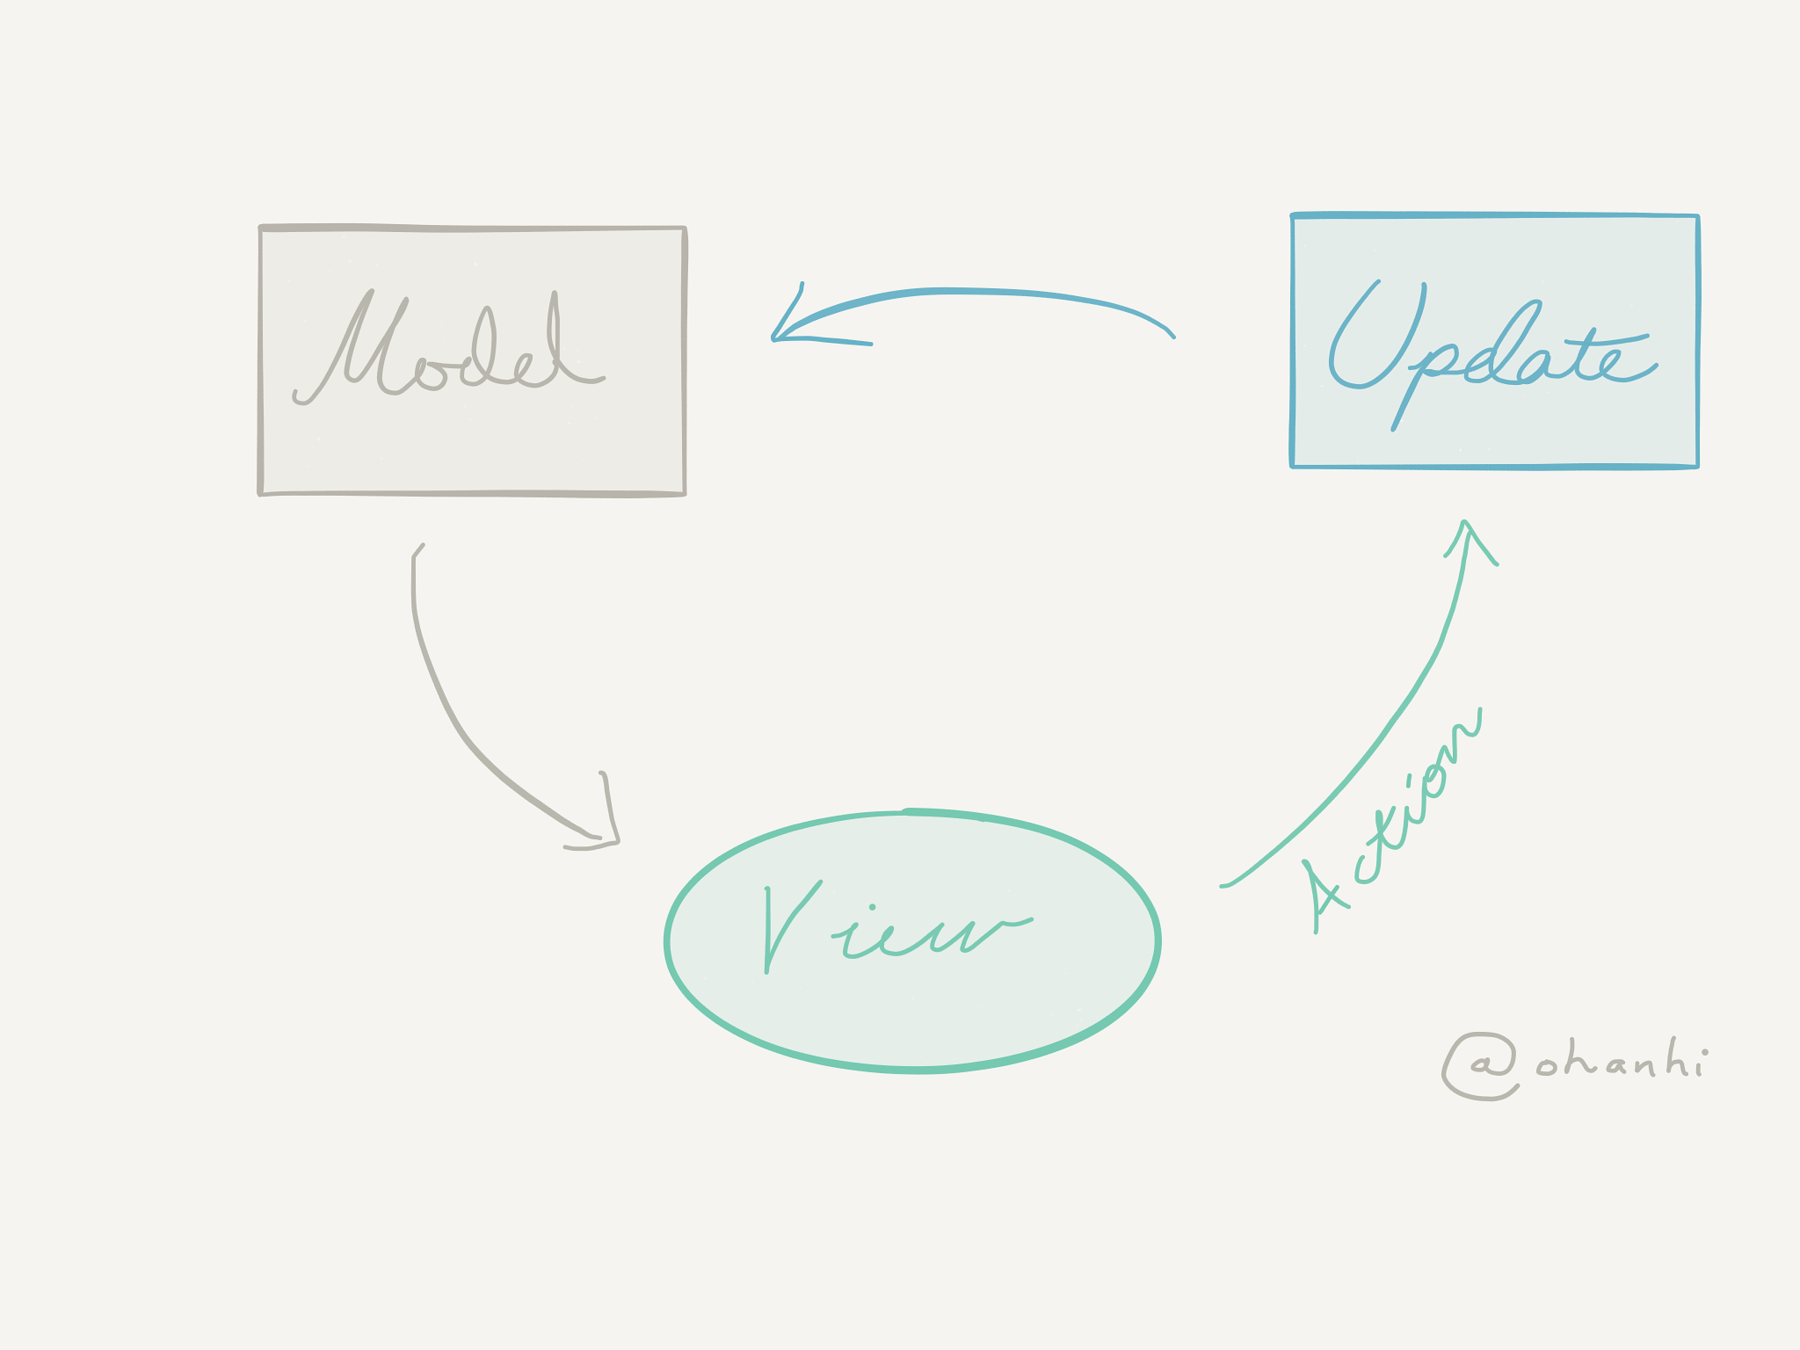 Model
Update
View
Action
@ohanhi